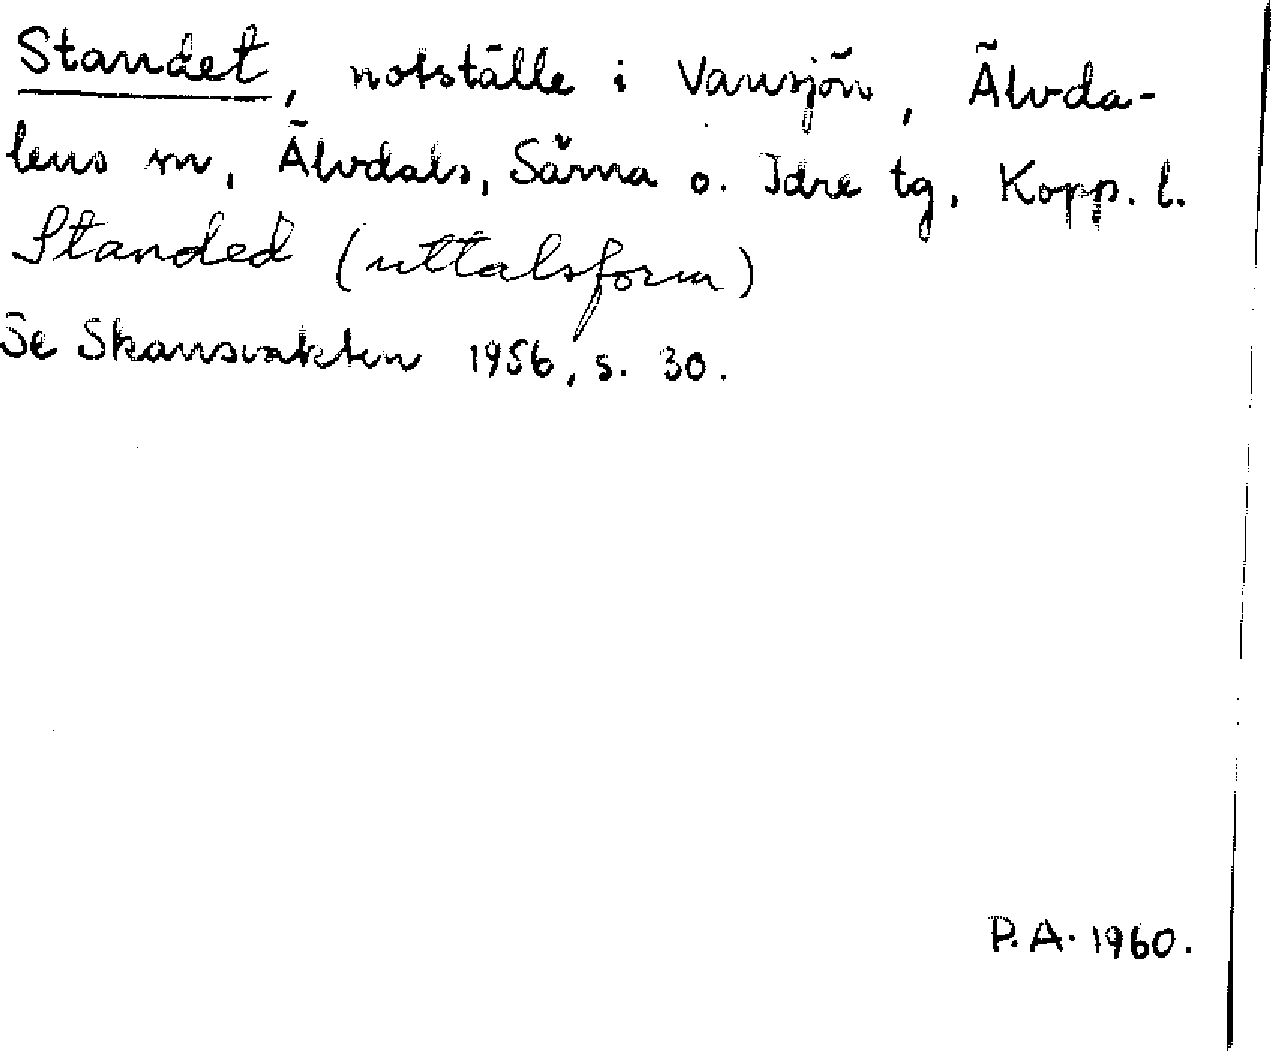 Standet, notställe i Vansjön, Älvda-
lens sn, Älvdals, Särna o. Idre tg, Kopp. l.
Standed (uttalsform)
Se Skansvakten 1956, s. 30.
P.A. 1960.